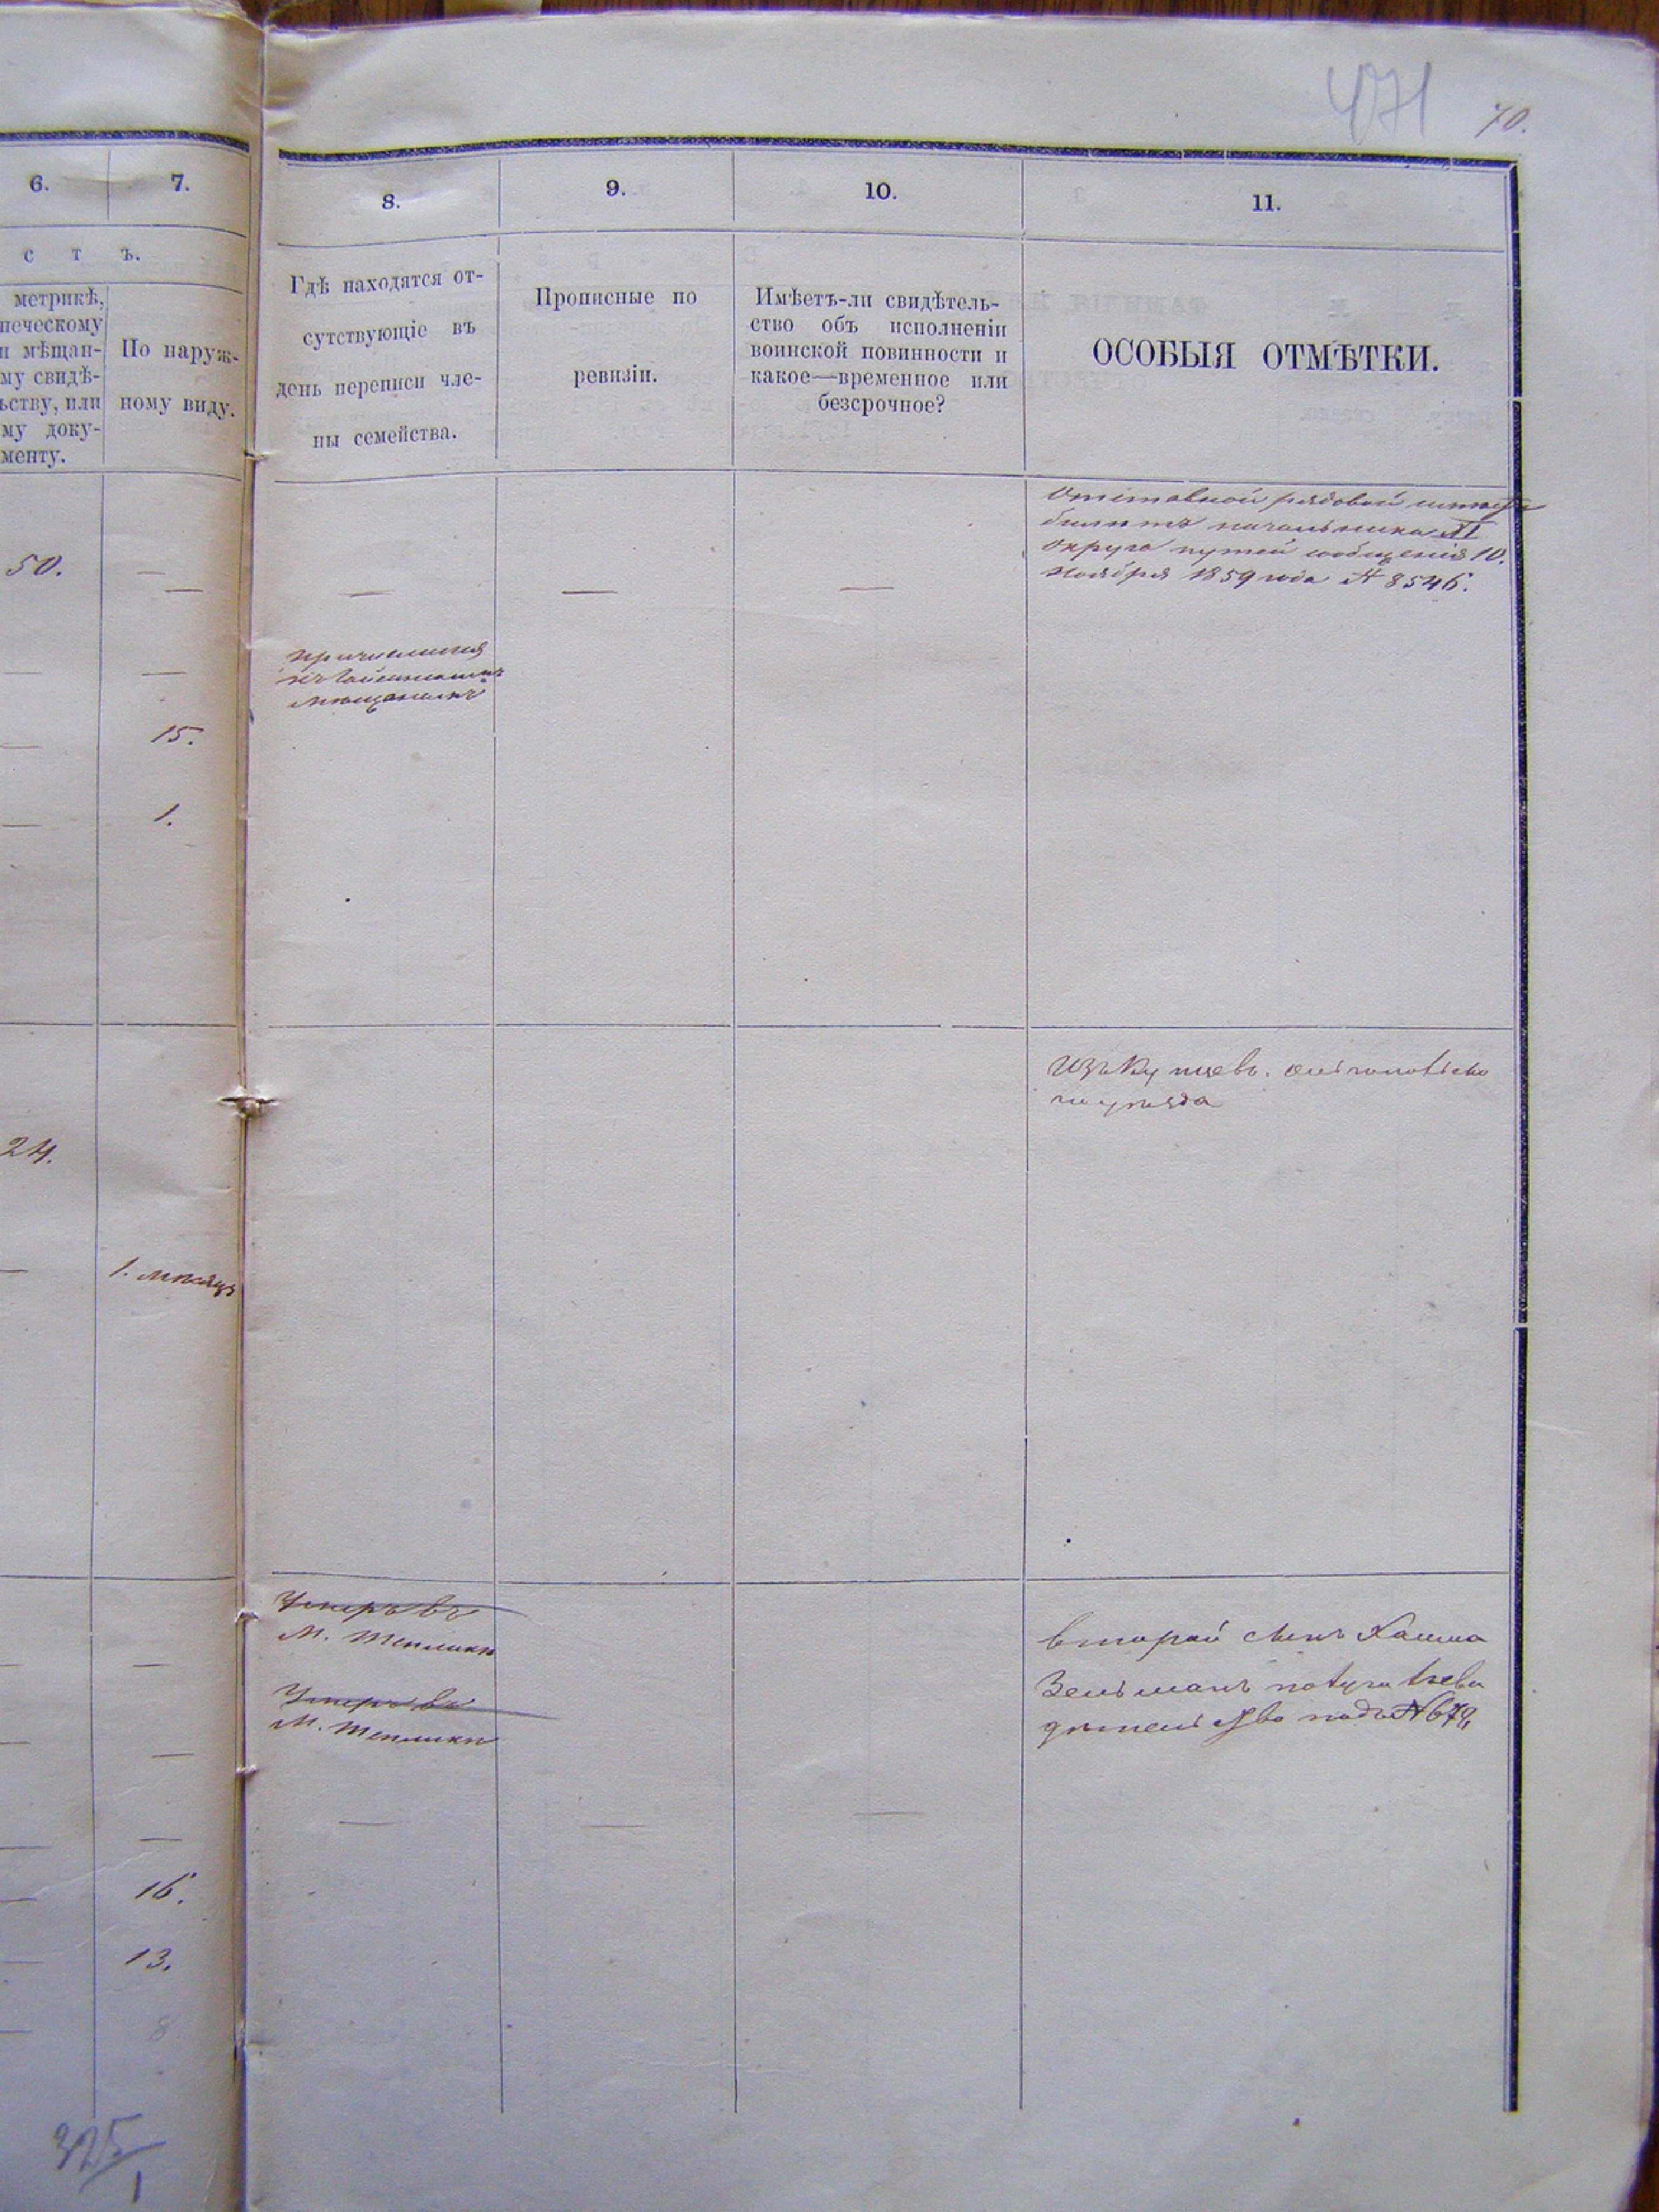 471 70.
6. 7.
с т ъ.
метрикѣ,
печескому
и мѣщан-
му свидѣ-
ьству, или
му доку-
менту.
По наруж-
ному виду.
8. 9. 10. 11.
Гдѣ находятся от-
сутствующіе въ
день переписи чле-
ны семейства.
Прописные по
ревизіи.
Имѣетъ-ли свидѣтель-
ство объ исполненіи
воинской повинности и
какое—временное или
безсрочное?
ОСОБЫЯ ОТМѢТКИ.
Отставной рядовой
билетъ начальника XI
округа путей сообщенія 10.
Ноября 1859 года № 8546.
50. —
— — — —
причислился
къ
мѣщанамъ
— —
— 15.
— 1.
Изъ Купцевъ.
24.
— 1. мѣсяцъ
Умеръ въ
М. Тепликѣ
Умеръ въ
М. Тепликѣ
второй сынъ
Зельманъ
подъ № 679,
— —
— —
— — — — —
— 16.
— 13.
— 8
325/1